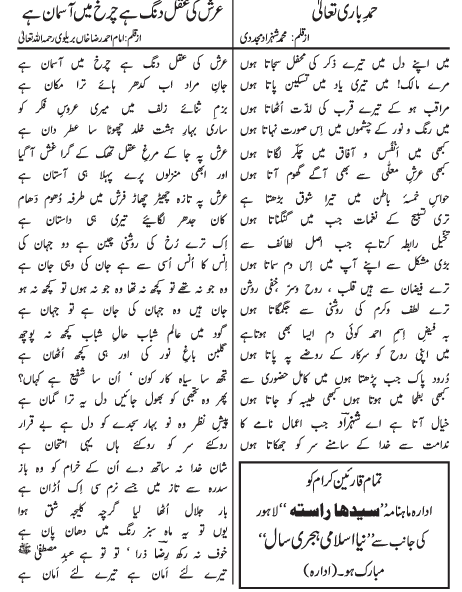 حمدِ باری تعالیٰ
از قلم: محمد شہزاد مجددی
میں اپنے دل میں تیرے ذکر کی محفل سجاتا ہوں
مرے مالک! میں تیری یاد میں تسکین پاتا ہوں
مراقب ہو کے تیرے قرب کی لذت اُٹھاتا ہوں
میں رنگ و نور کے چشموں میں اِس صورت نہاتا ہوں
کبھی میں اَنْفُس و آفاق میں چکّر لگاتا ہوں
کبھی عرشِ معلّٰی سے بھی آگے گھوم آتا ہوں
حواسِ خمسۂ باطن میں تیرا شوق بڑھتا ہے
تری تسبیح کے نغمات جب میں گنگناتا ہوں
تخیّل رابطہ کرتا ہے جب اصل لطائف سے
بڑی مشکل سے اپنے آپ میں اِس دم سماتا ہوں
ترے فیضان سے ہیں قلب ، روح و سرّ، خفی روشن
ترے لطف و کرم کی روشنی سے جگمگاتا ہوں
بہ فیضِ اسمِ احمد کوئی دم ایسا بھی ہوتا ہے
میں اپنی روح کو سرکار کے روضے پہ پاتا ہوں
دُرود پاک جب پڑھتا ہوں میں کامل حضوری سے
کبھی بطحا میں ہوتا ہوں کبھی طیبہ کو جاتا ہوں
خیال آتا ہے اے شہزادؔ جب اعمال نامے کا
ندامت سے خدا کے سامنے سر کو جھکاتا ہوں
تمام قارئین کرام کو
ادارہ ماہنامہ "سیدھا راستہ" لاہور
کی جانب سے "نیا اسلامی ہجری سال"
مبارک ہو۔ (ادارہ)
عرش کی عقل دنگ ہے چرخ میں آسمان ہے
از قلم: امام احمد رضا خاں بریلوی رحمۃ اللہ تعالیٰ
عرش کی عقل دنگ ہے چرخ میں آسمان ہے
جانِ مراد اب کدھر ہائے ترا مکان ہے
بزمِ ثنائے زلف میں میری عروسِ فکر کو
ساری بہارِ ہشت خلد چھوٹا سا عطر دان ہے
عرش پہ جا کے مرغِ عقل تھک کے گرا غش آ گیا
اور ابھی منزلوں پرے پہلا ہی آستان ہے
عرش پہ تازہ چھیڑ چھاڑ فرش میں طرفہ دُھوم دَھام
کان جدھر لگائیے تیری ہی داستان ہے
اِک ترے رُخ کی روشنی چین ہے دو جہان کی
اِنْس کا اُنْس اُسی سے ہے جان کی وہی جان ہے
وہ جو نہ تھے تو کچھ نہ تھا وہ جو نہ ہوں تو کچھ نہ ہو
جان ہیں وہ جہان کی جان ہے تو جہان ہے
گود میں عالمِ شباب حالِ شباب کچھ نہ پوچھ
گلبنِ باغِ نور کی اور ہی کچھ اُٹھان ہے
تجھ سا سیاہ کار کون ' اُن سا شفیع ہے کہاں؟
پھر وہ تجھی کو بھول جائیں دل یہ ترا گمان ہے
پیشِ نظر وہ نو بہار سجدے کو دل ہے بے قرار
روکئے سر کو روکئے ہاں یہی امتحان ہے
شانِ خدا نہ ساتھ دے اُن کے خرام کو وہ باز
سدرہ سے تا زمیں جسے نرم سی اِک اُڑان ہے
بارِ جلال اُٹھا لیا گرچہ کلیجہ شق ہوا
یوں تو یہ ماہِ سبز رنگ میں دھان پان ہے
خوف نہ رکھ رضؔا ذرا ' تو تو ہے عبدِ مصطفیٰ ﷺ
تیرے لئے اَمان ہے تیرے لئے اَمان ہے